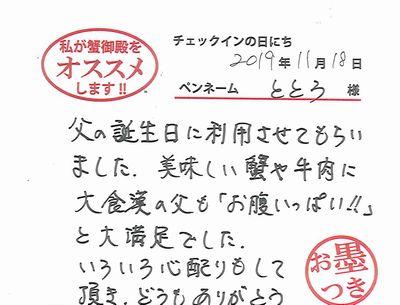 私が蟹御殿を
オススメ
します!!
チェックインの日にち
2019年11月18日
ペンネーム ととろ 様
父の誕生日に利用させてもらい
ました. 美味しい蟹や牛肉に
大食漢の父も「お腹いっぱい!!」
と大満足でした.
いろいろ心配りもして
頂き、どうもありがとう
お墨
つき